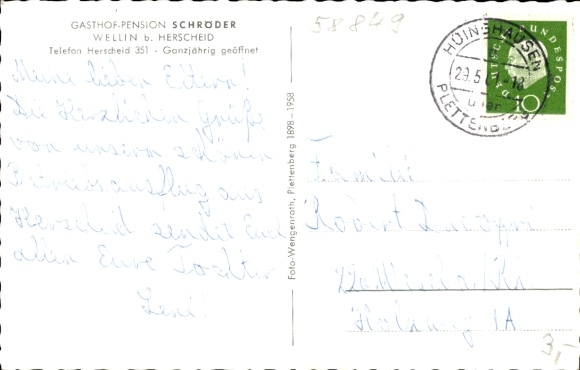 GASTHOF-PENSION SCHRÖDER
WELLIN b. HERSCHEID
Telefon Herscheid 351 - Ganzjährig geöffnet
Meine lieben Eltern!
Die Herzlichen Grüße
von unserm schönen
Betriebsausflug aus
Herscheid sendet Euch
allen Eure Tochter
Leni!
Foto-Wengenroth, Plettenberg 1898-1958
58849
HÜINGHAUSEN
29.5.61-18
über
PLETTENBERG
DEUTSCHE BUNDESPOST
10
Familie
Robert
3,-